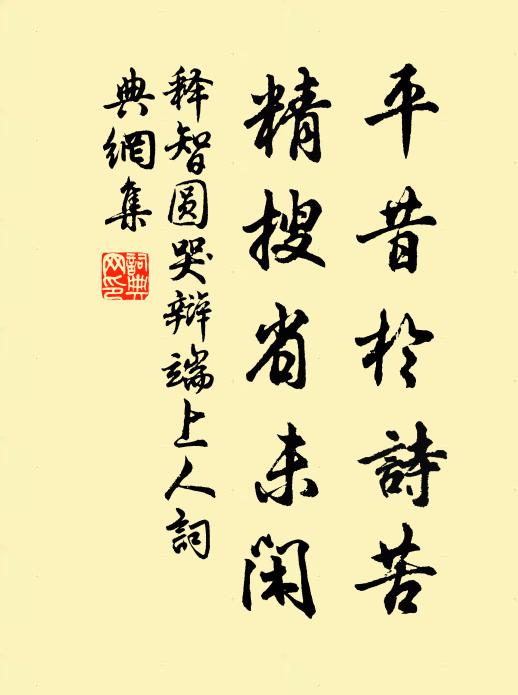 平昔於詩苦
精搜省未閑
释智圆哭辯端上人詞
典網集
詞典網印